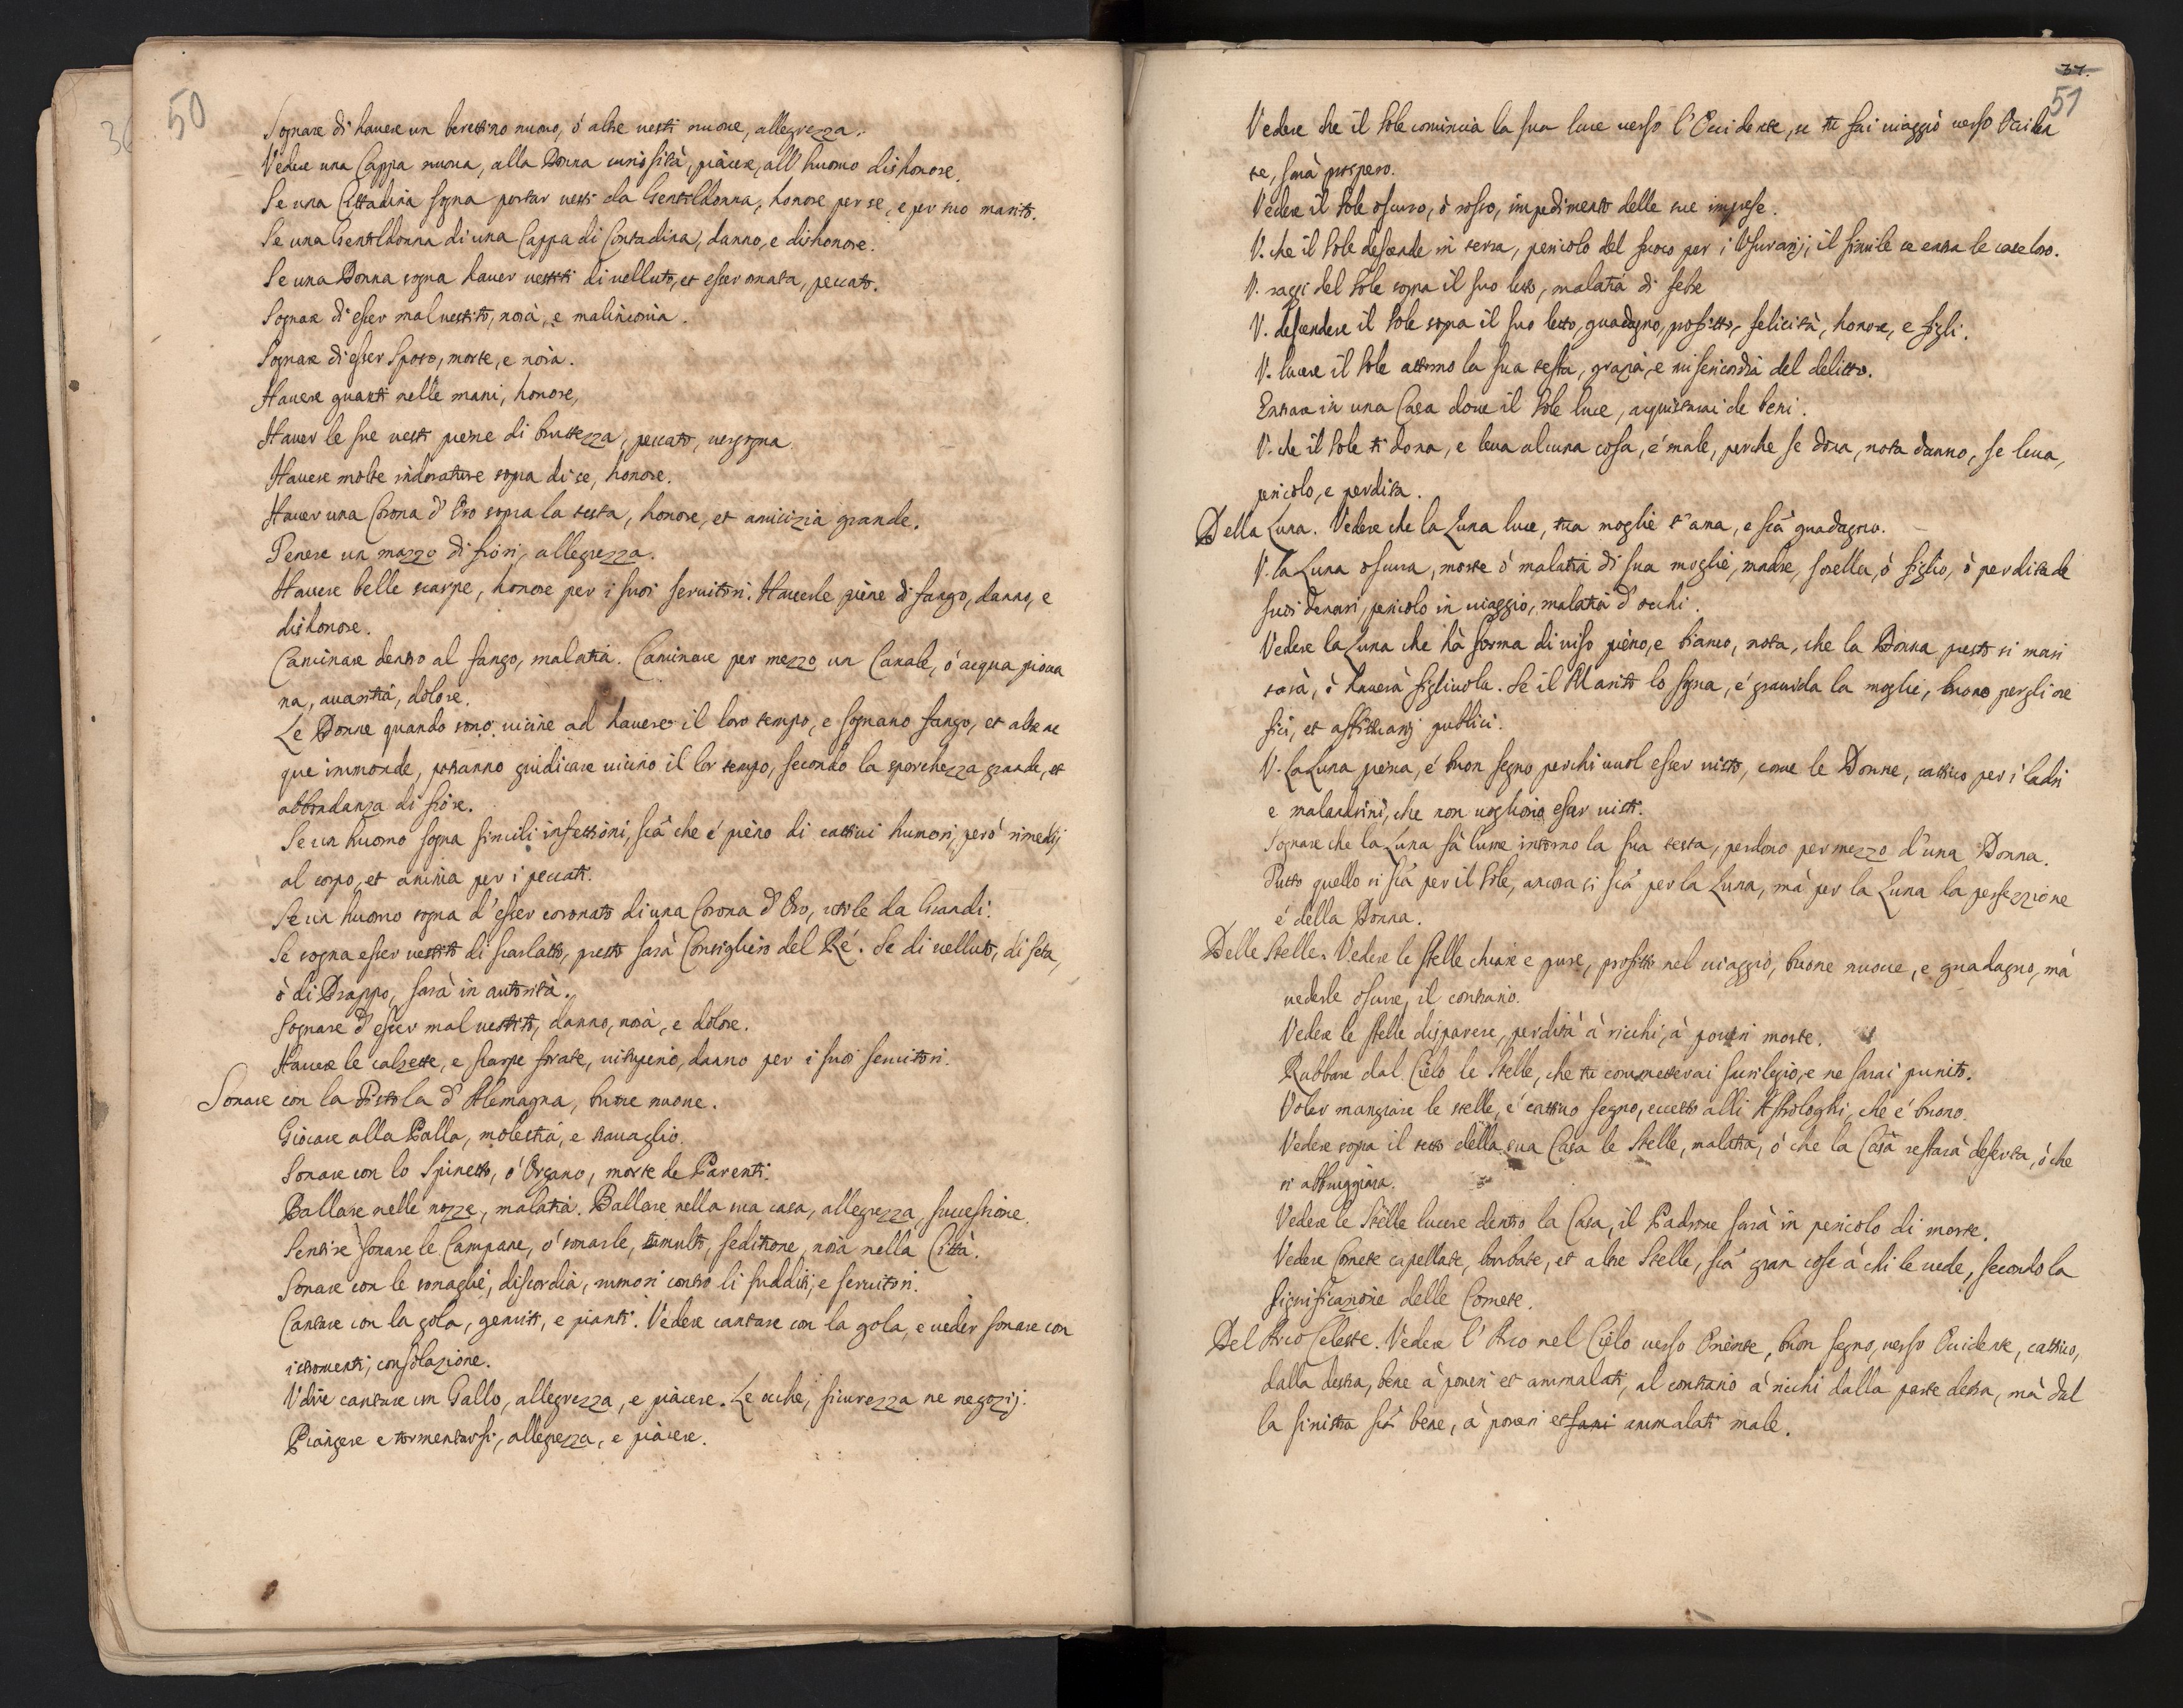 50
Sognare di hauere un berettino nuouo, ó altre uesti nuoue, allegrezza.
Vedere una Cappa nuoua, alla Donna curiosità, piacere, all'huomo dishonore.
Se una Cittadina sogna portar uesti da Gentildonna, honore per se, e per suo marito.
Se una Gentildonna di una Cappa di Contadina, danno, e dishonore.
Se una Donna sogna hauer uestiti di uelluto, et esser ornata, peccato.
Sognare di esser mal uestito, noia, e malinconia.
Sognare di esser Sposo, morte, e noia.
Hauere guanti nelle mani, honore,
Hauer le sue uesti piene di bruttezza, peccato, uergogna.
Hauere molte indorature sopra di se, honore.
Hauer una Corona d'Oro sopra la testa, honore, et amicizia grande.
Tenere un mazzo di fiori, allegrezza.
Hauere belle scarpe, honore per i suoi seruitori. Hauerle piene di fango, danno, e
dishonore.
Caminare dentro al fango, malatia. Caminare per mezzo un Canale, ó acqua pioua
na, auaritia, dolore.
Le Donne quando sono uicine ad hauere il loro tempo, e sognano fango, et altre ac
que immonde, potranno giudicare uicino il lor tempo, secondo la sporchezza grande, et
abbondanza di fiore.
Se un huomo sogna simili infettioni, scià che é pieno di cattiui humori, però rimedij
al corpo, et anima per i peccati.
Se un huomo sogna d'esser coronato di una Corona d'Oro, utile da Grandi.
Se sogna esser uestito di scarlatto, presto sarà Consigliero del Ré. Se di uelluto, di seta,
ò di Drappo, sarà in autorità.
Sognare d'esser mal uestito, danno, noia, e dolore.
Hauere le calzette, e scarpe forate, uituperio, danno per i suoi seruitori.
Sonare con la Pistola d'Alemagna, buone nuoue.
Giocare alla Palla, molestia, e trauaglio.
Sonare con lo Spinetto, ó Organo, morte de Parenti.
Ballare nelle nozze, malatia. Ballare nella sua casa, allegrezza, successione.
Sentire sonare le Campane, ó sonarle, tumulto, seditione, noia nella Città.
Sonare con le sonaglie, discordia, rumori contro li sudditi, e seruitori.
Cantare con la gola, gemiti, e pianti. Vedere cantare con la gola, e ueder sonare con
istromenti, consolazione.
Vdire cantare un Gallo, allegrezza, e piacere. Le oche, sicurezza ne negozij.
Piangere e tormentarsi, allegrezza, e piacere.
51
Vedere che il Sole comincia la sua luce uerso l'Occidente, se tu fai uiaggio uerso Occiden
te, sarà prospero.
Vedere il Sole oscuro, ò rosso, impedimento delle sue imprese.
V. che il Sole descende in terra, pericolo del fuoco per i Vsurarij, il simile se entra le case loro.
V. raggi del Sole sopra il suo letto, malatia di febre
V. descendere il Sole sopra il suo letto, guadagno, profitto, felicità, honore, e figli.
V. lucere il Sole attorno la sua testa, grazia, e misericordia del delitto.
Entrare in una Casa doue il Sole luce, acquistarai de beni.
V. che il Sole ti dona, e leua alcuna cosa, é male, perche se dona, nota danno, se leua,
pericolo, e perdita.
Della Luna. Vedere che la Luna luce, tua moglie t'ama, e scià guadagno.
V. la Luna oscura, morte ò malatia di sua moglie, madre, sorella, ò figlio, ò perdita de
suoi denari, pericolo in uiaggio, malatia d'occhi.
Vedere la Luna che hà forma di uiso pieno, e bianco, nota, che la Donna presto si mari
tarà, ò hauerà figliuola. Se il Marito lo sogna, é grauida la moglie, buono per gli ore
fici, et affittuarij publici.
V. la Luna piena, é buon segno per chi uuol esser uisto, come le Donne, cattiuo per i ladri
e malandrini, che non uogliono esser uisti.
Sognare che la Luna fà lume intorno la sua testa, perdono per mezzo d'una Donna.
Tutto quello si scià per il Sole, ancora si scià per la Luna, mà per la Luna la perfezzione
é della Donna.
Delle Stelle. Vedere le stelle chiare e pure, profitto nel uiaggio, buone nuoue, e guadagno, mà
uederle oscure, il contrario.
Vedere le stelle disparere, perdita à ricchi, à poueri morte.
Rubbare dal Cielo le Stelle, che tu commetterai sacrilegio, e ne sarai punito.
Voler mangiare le stelle, é cattiuo segno, eccetto alli Astrologhi, che é buono.
Vedere sopra il tetto della sua Casa le Stelle, malatia, ò che la Casa restarà deserta, ò che
si abbruggiara.
Vedere le Stelle lucere dentro la Casa, il Padrone sarà in pericolo di morte.
Vedere Comete capellate, barbate, et altre Stelle, scià gran cose à chi le uede, secondo la
significazione delle Comete.
Del Arco Celeste. Vedere l'Arco nel Cielo uerso Oriente, buon segno, uerso Occidente, cattiuo,
dalla destra, bene à poueri et ammalati, al contrario à ricchi dalla parte destra, mà dal
la sinistra scià bene, à poueri et sani ammalati male.